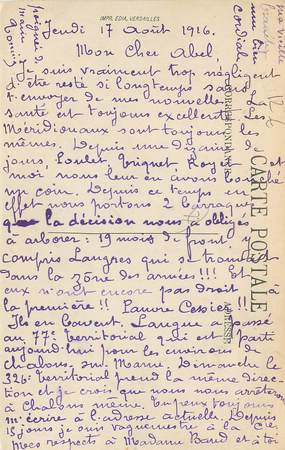 IMPR. EDIA, VERSAILLES
Jeudi 17 Août 1916.
Mon Cher Abel,
Je suis vraiment trop négligent
d'être resté si longtemps sans
t'envoyer de mes nouvelles. La
santé est toujours excellente. Les
Méridionaux sont toujours les
mêmes. Depuis une dizaine de
jours, Poulet, Royer et
moi nous leur en avons bouché
un coin. Depuis ce temps en
effet nous portons 2 barraques
que la décision nous a obligés
à arborer : 19 mois de front y
compris Langres qui se trouvait
dans la zône des armées !!! Et
eux n'ont encore pas droit
à la première !! Pauvre !!
Ils en bavent. Langue a passé
au 77e territorial qui est parti
aujourd'hui pour les environs de
Chalons sur Marne. Dimanche le
326e territorial prend la même direc-
tion et je crois que nous nous arrêterons
à Chalons même. Tu peux toujours
m'écrire à l'adresse actuelle. Depuis
15 jours je suis vaguemestre à la Cie
Mes respects à Madame et à toi
une
cordiale
poignée de
main
CARTE POSTALE
CORRESPONDANCE
ADRESSE